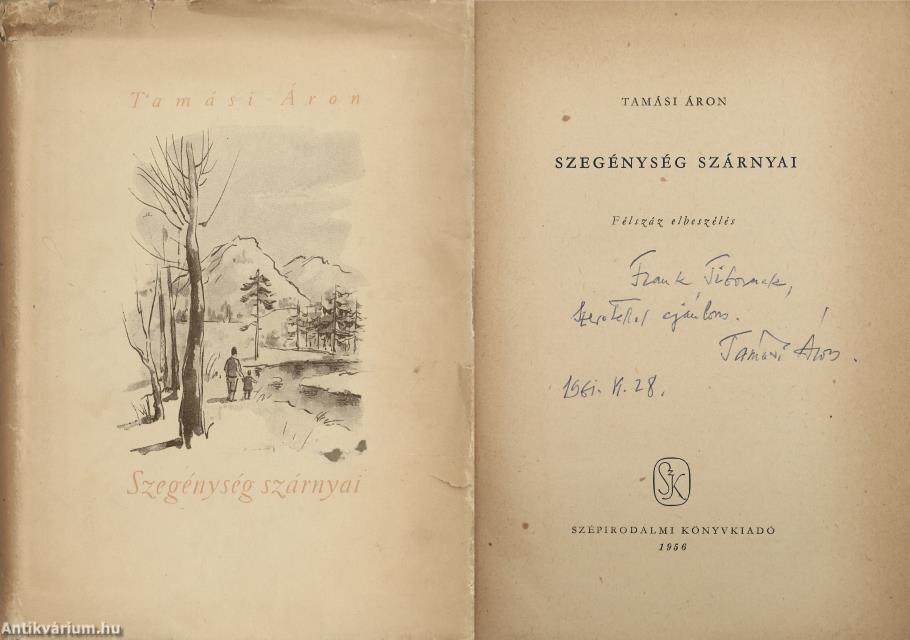 Tamási Áron
Szegénység szárnyai
TAMÁSI ÁRON
SZEGÉNYSÉG SZÁRNYAI
Félszáz elbeszélés
Frank Tibornak,
Szeretettel ajánlom.
Tamási Áron.
1961. 28.
SzK
SZÉPIRODALMI KÖNYVKIADÓ
1956
Antikvárium.hu